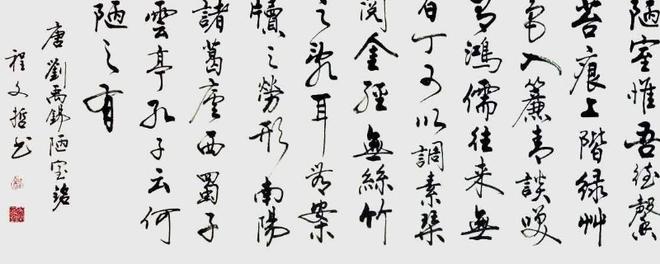 陋室惟吾德馨
苔痕上階緑艸
色入簾青談笑
有鴻儒往来無
白丁可以調素琴
閲金經無絲竹
之亂耳無案
牘之勞形南陽
諸葛廬西蜀子
雲亭孔子云何
陋之有
唐劉禹錫陋室銘
程文哲书